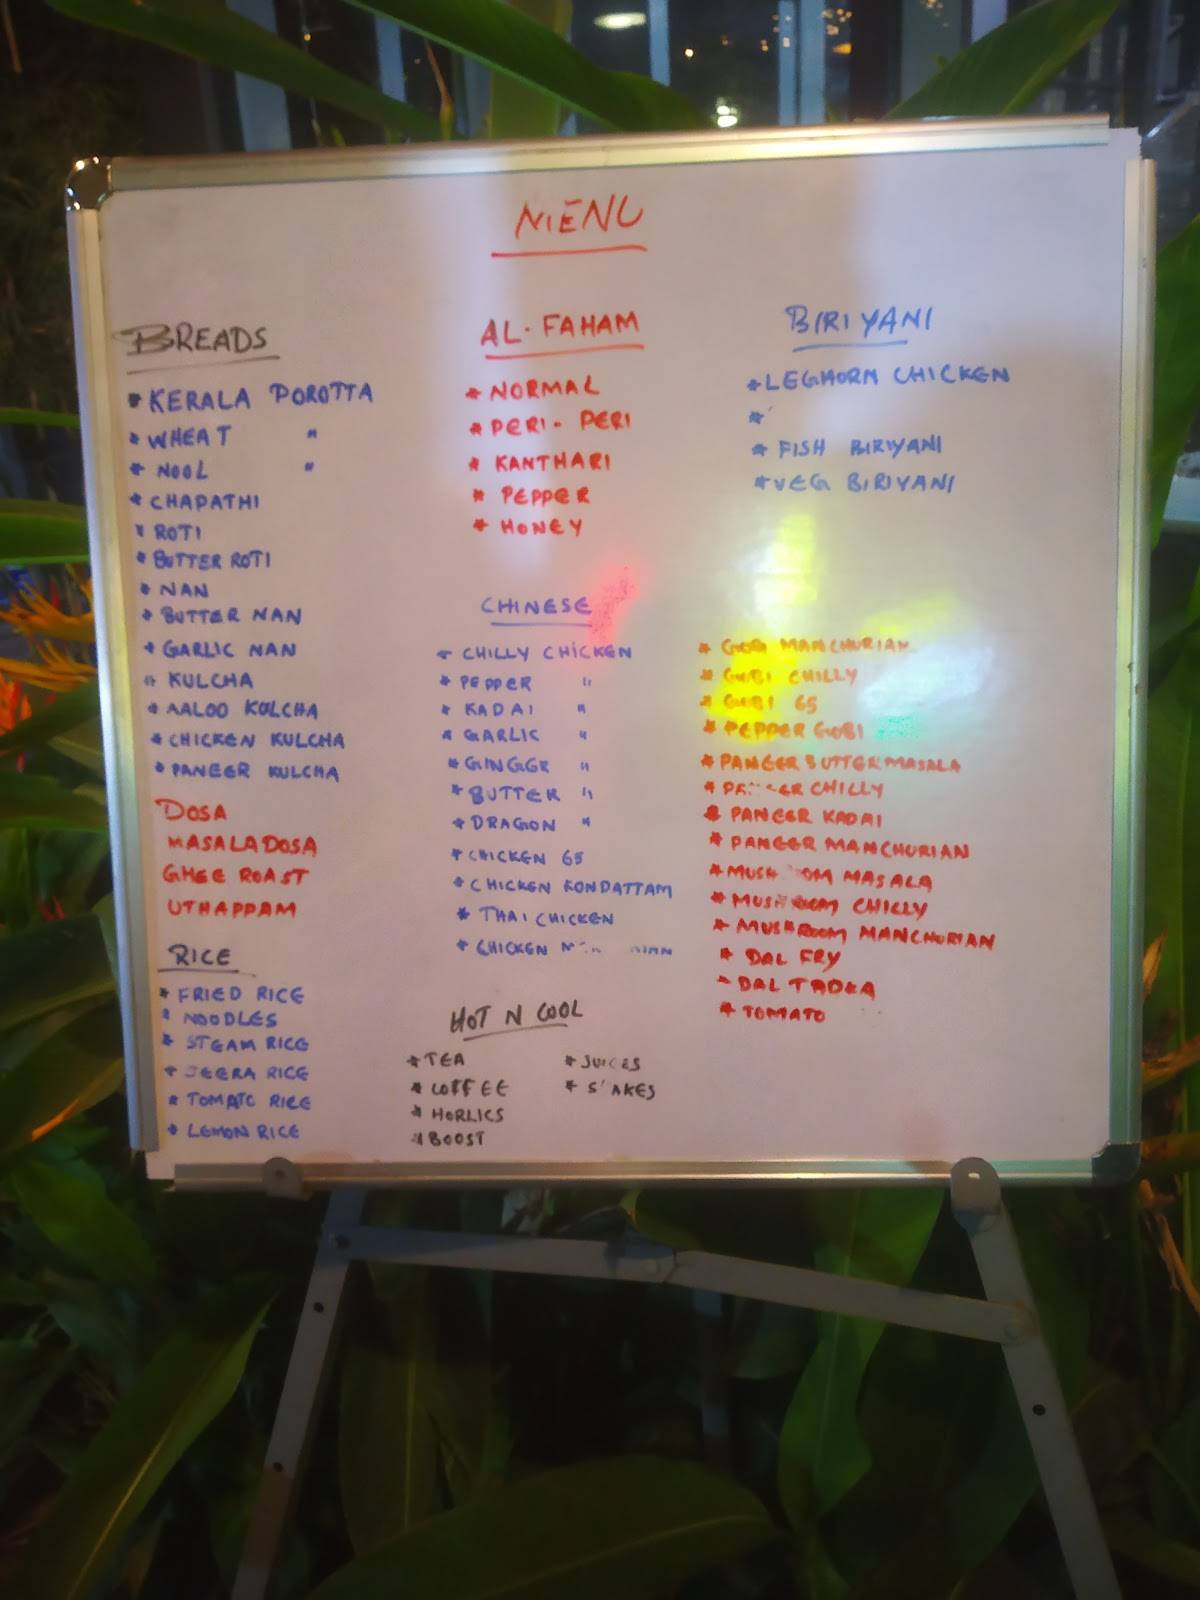 MENU
BREADS
* KERALA POROTTA
* WHEAT "
* NOOL "
* CHAPATHI
* ROTI
* BUTTER ROTI
* NAN
* BUTTER NAN
* GARLIC NAN
* KULCHA
* AALOO KULCHA
* CHICKEN KULCHA
* PANEER KULCHA
DOSA
MASALA DOSA
GHEE ROAST
UTHAPPAM
RICE
* FRIED RICE
* NOODLES
* STEAM RICE
* JEERA RICE
* TOMATO RICE
* LEMON RICE
AL-FAHAM
* NORMAL
* PERI-PERI
* KANTHARI
* PEPPER
* HONEY
CHINESE
* CHILLY CHICKEN
* PEPPER "
* KADAI "
* GARLIC "
* GINGER "
* BUTTER "
* DRAGON "
* CHICKEN 65
* CHICKEN KONDATTAM
* THAI CHICKEN
* CHICKEN
HOT N COOL
* TEA
* COFFEE
* HORLICS
* BOOST
* JUICES
* S AKES
BIRIYANI
* LEGHORN CHICKEN
*
* FISH BIRIYANI
* VEG BIRIYANI
* GOBI MANCHURIAN
* GOBI CHILLY
* GOBI 65
* PEPPER GOBI
* PANEER BUTTER MASALA
* PANEER CHILLY
* PANEER KADAI
* PANEER MANCHURIAN
* MUSHROOM MASALA
* MUSHROOM CHILLY
* MUSHROOM MANCHURIAN
* DAL FRY
* DAL TADKA
* TOMATO